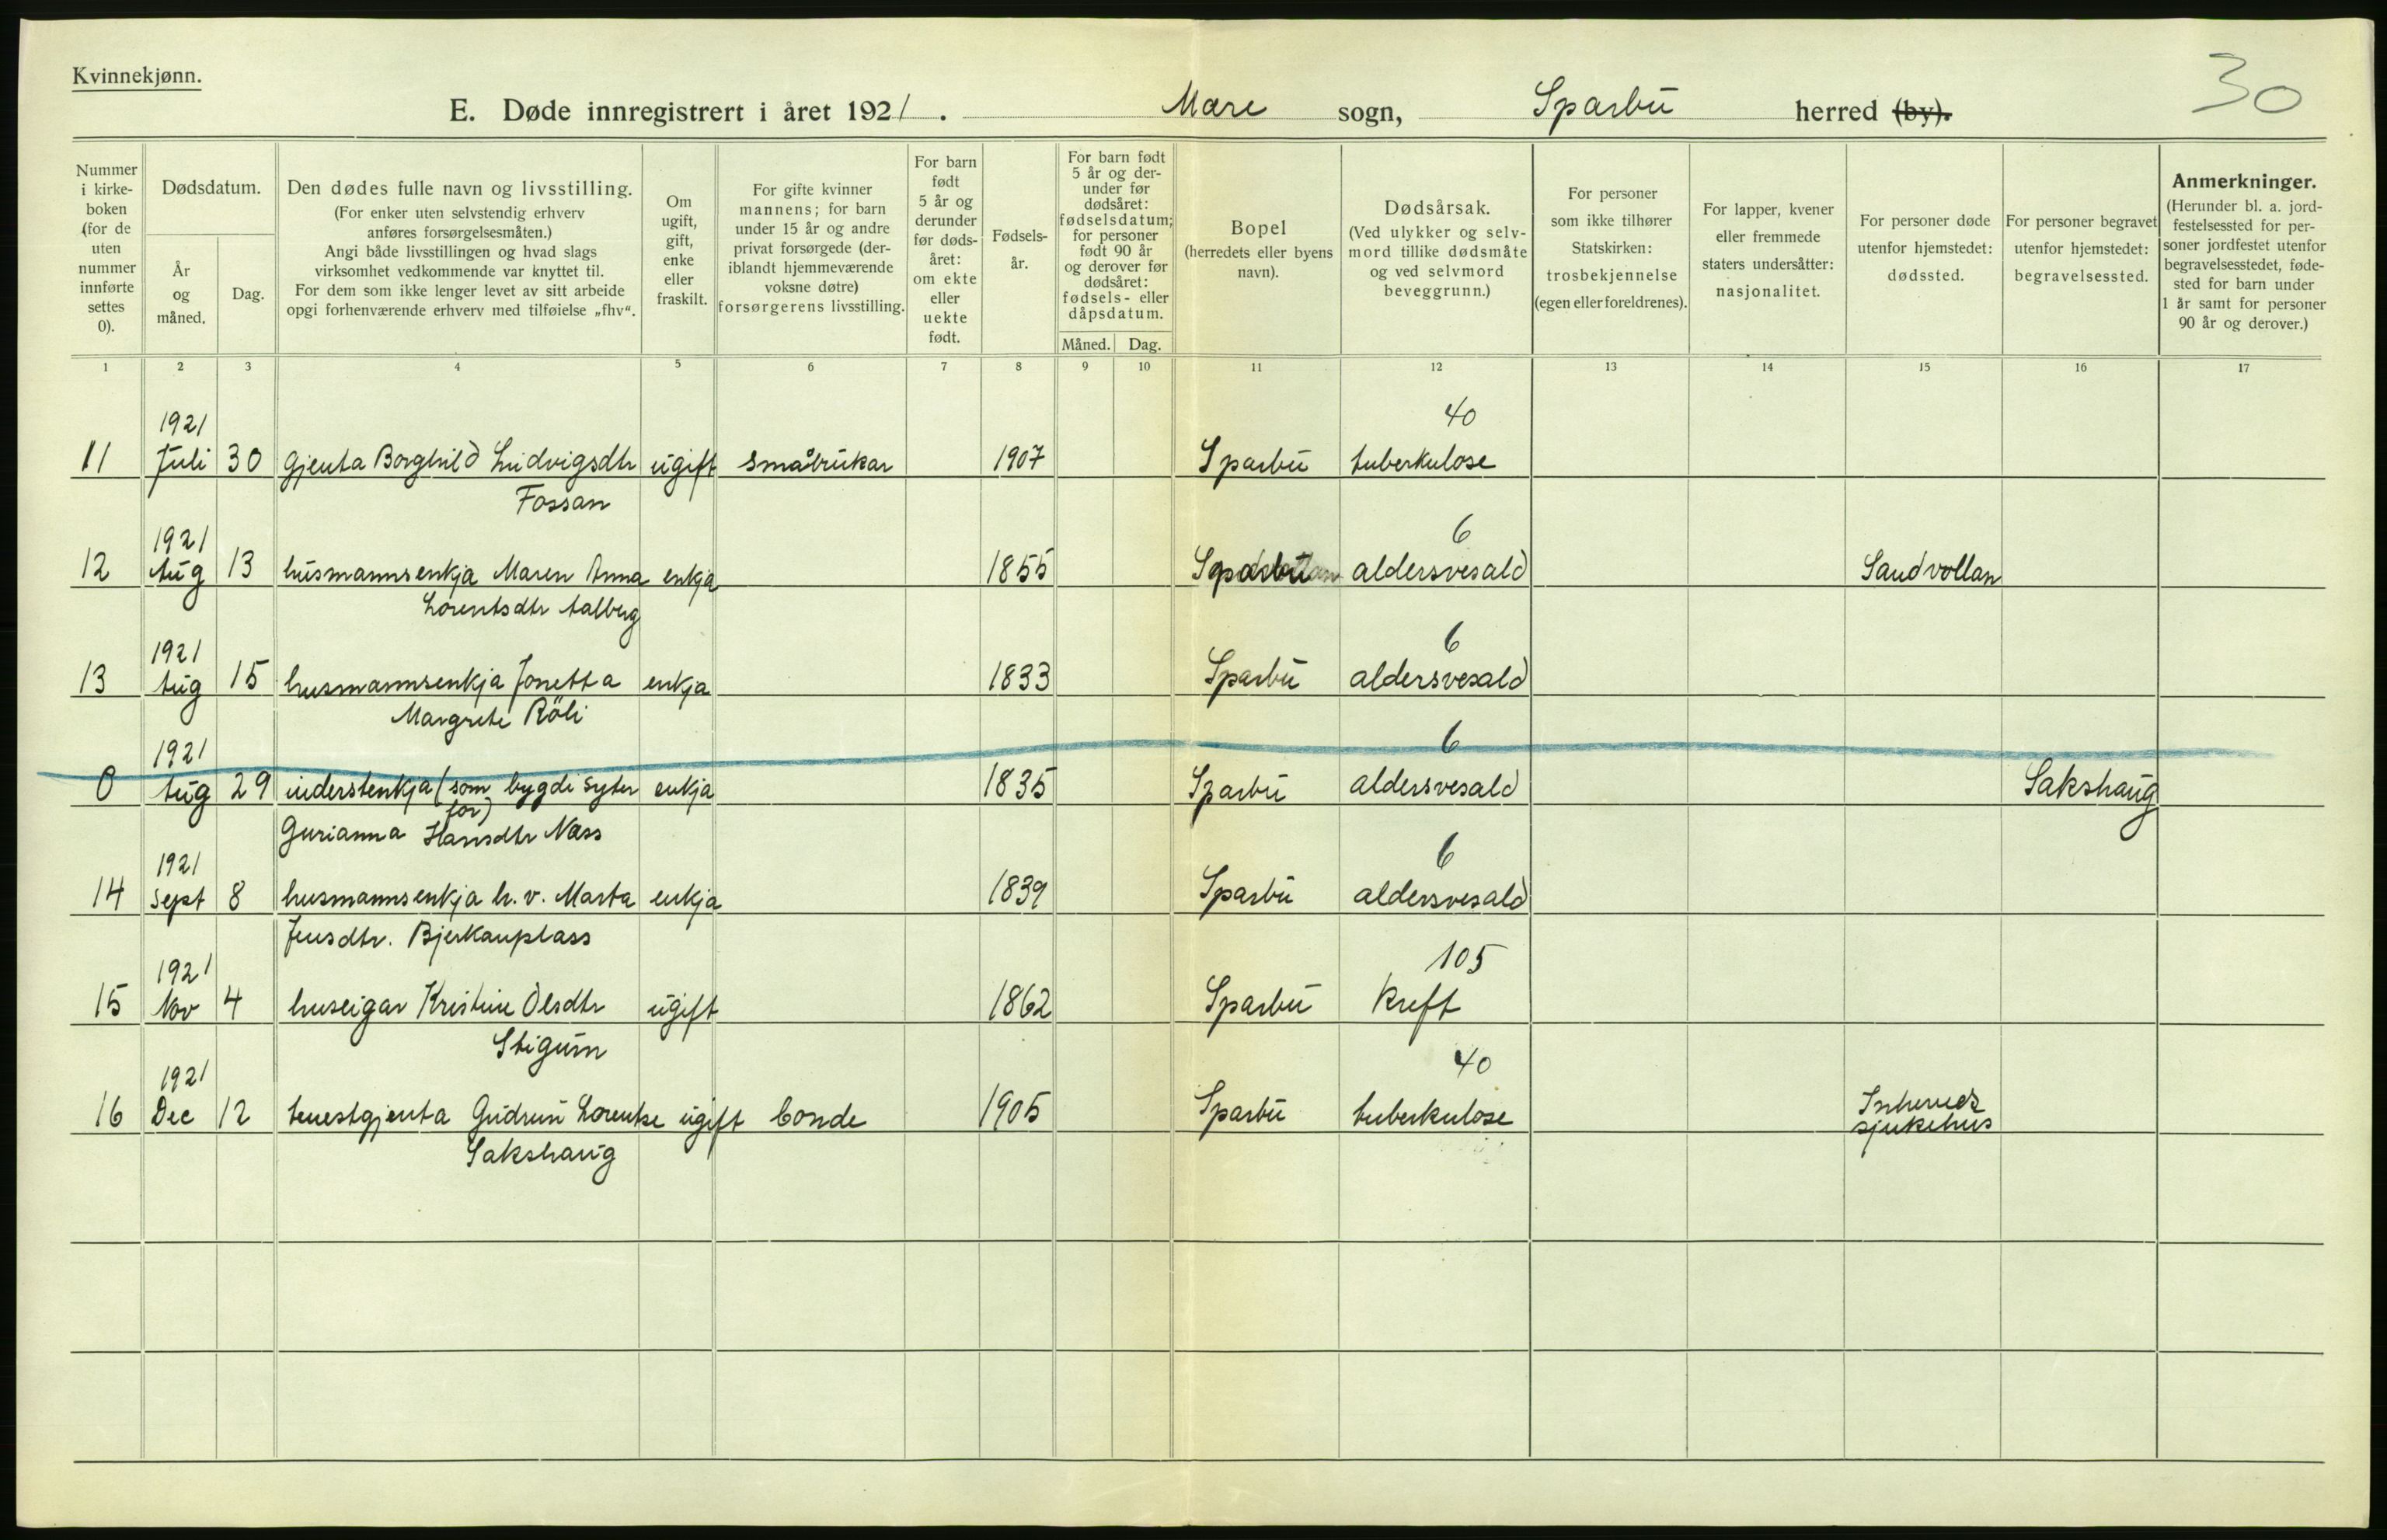 Kvinnekjønn.
30
E. Døde innregistrert i året 1921. Mære sogn, Sparbu herred (by).
Nummer i kirke-boken (for de uten nummer innførte settes 0).
Dødsdatum.
År og måned.
Dag.
Den dødes fulle navn og livsstilling.
(For enker uten selvstendig erhverv
anføres forsørgelsesmåten.)
Angi både livsstillingen og hvad slags
virksomhet vedkommende var knyttet til.
For dem som ikke lenger levet av sitt arbeide
opgi forhenværende erhverv med tilføielse „fhv“.
Om ugift, gift, enke eller fraskilt.
For gifte kvinner
mannens; for barn
under 15 år og andre
privat forsørgede (der-
iblandt hjemmeværende
voksne døtre)
forsørgerens livsstilling.
For barn født 5 år og derunder før døds-året: om ekte eller uekte født.
Fødsels-år.
For barn født
5 år og der-
under før
dødsåret:
fødselsdatum;
for personer
født 90 år
og derover før
dødsåret:
fødsels- eller
dåpsdatum.
Måned. Dag.
Bopel
(herredets eller byens
navn).
Dødsårsak.
(Ved ulykker og selv-
mord tillike dødsmåte
og ved selvmord
beveggrunn.)
For personer
som ikke tilhører
Statskirken:
trosbekjennelse
(egen eller foreldrenes).
For lapper, kvener
eller fremmede
staters undersåtter:
nasjonalitet.
For personer døde
utenfor hjemstedet:
dødssted.
For personer begravet
utenfor hjemstedet:
begravelsessted.
Anmerkninger.
(Herunder bl. a. jord-
festelsessted for per-
soner jordfestet utenfor
begravelsesstedet, føde-
sted for barn under
1 år samt for personer
90 år og derover.)
1 2 3 4 5 6 7 8 9 10 11 12 13 14 15 16 17
1921 40
11 Juli 30 Gjenta Borghild Ludvigsdtr ugift småbrukar 1907 Sparbu tuberkulose
Fossan
1921 6
12 Aug 13 husmannsenkja Maren Anna enkja 1855 Sparbu aldersvesald Sandvollan
Lorentsdtr Aalberg
1921 6
13 Aug 15 husmannsenkja Jonetta enkja 1833 Sparbu aldersvesald
Margrete Röli
1921 6
0 Aug 29 inderstenkja (som bygdi syter enkja 1835 Sparbu aldersvesald Sakshaug
for)
Gurianna Hansdtr Næss
1921 6
14 Sept 8 husmannsenkja h. v. Marta enkja 1839 Sparbu aldersvesald
Jensdtr. Bjerkanplass
1921 105
15 Nov 4 huseigar Kristine Olsdtr ugift 1862 Sparbu Kreft
Stigum
1921 40
16 Dec 12 tenestgjenta Gudrun Lorentse ugift bonde 1905 Sparbu tuberkulose Inherreds
sjukehus
Sakshaug